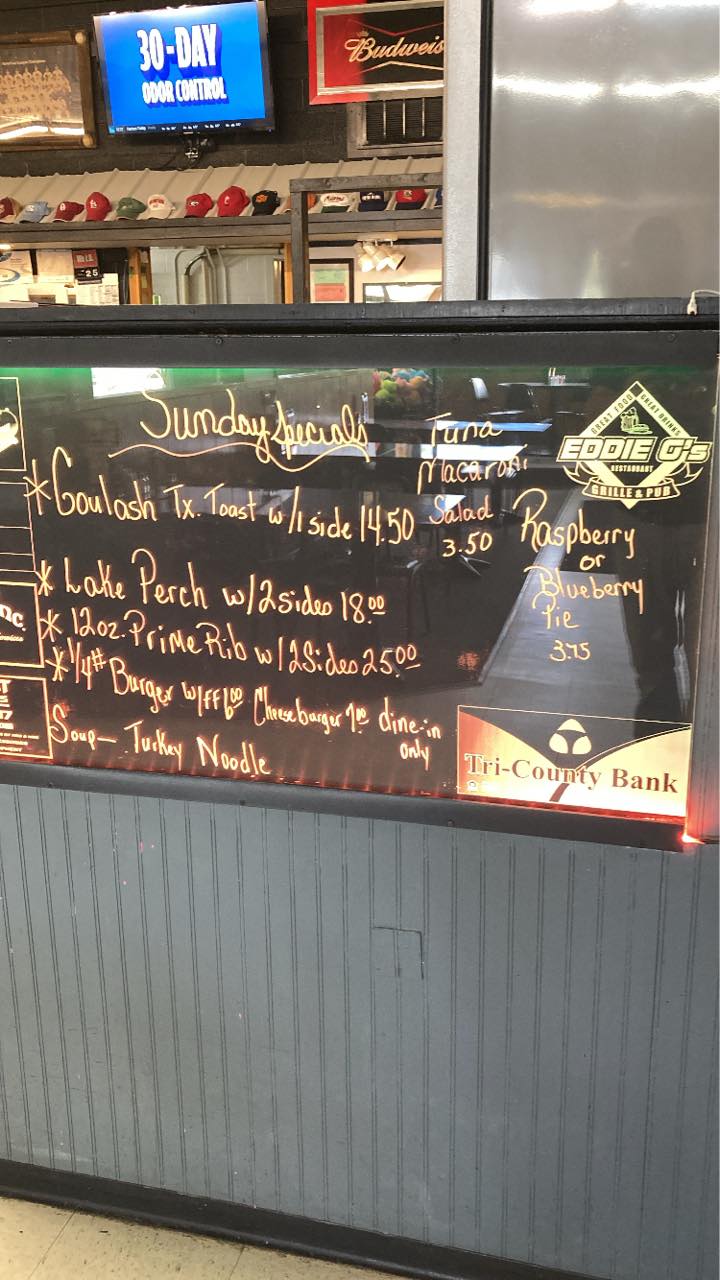 30-DAY
ODOR CONTROL
Budweis
25
Sunday Specials
* Goulash Tx. Toast w/1 side 14.50
* Lake Perch w/2sides 18.00
* 12oz. Prime Rib w/2Sides 25.00
* 1/4# Burger w/ff 6.00 Cheeseburger 7.00 dine-in
only
Soup- Turkey Noodle
Tuna
Macaroni
Salad
3.50
Raspberry
or
Blueberry
Pie
3.75
GREAT FOOD GREAT DRINKS
EDDIE G's
RESTAURANT
GRILLE & PUB
Tri-County Bank